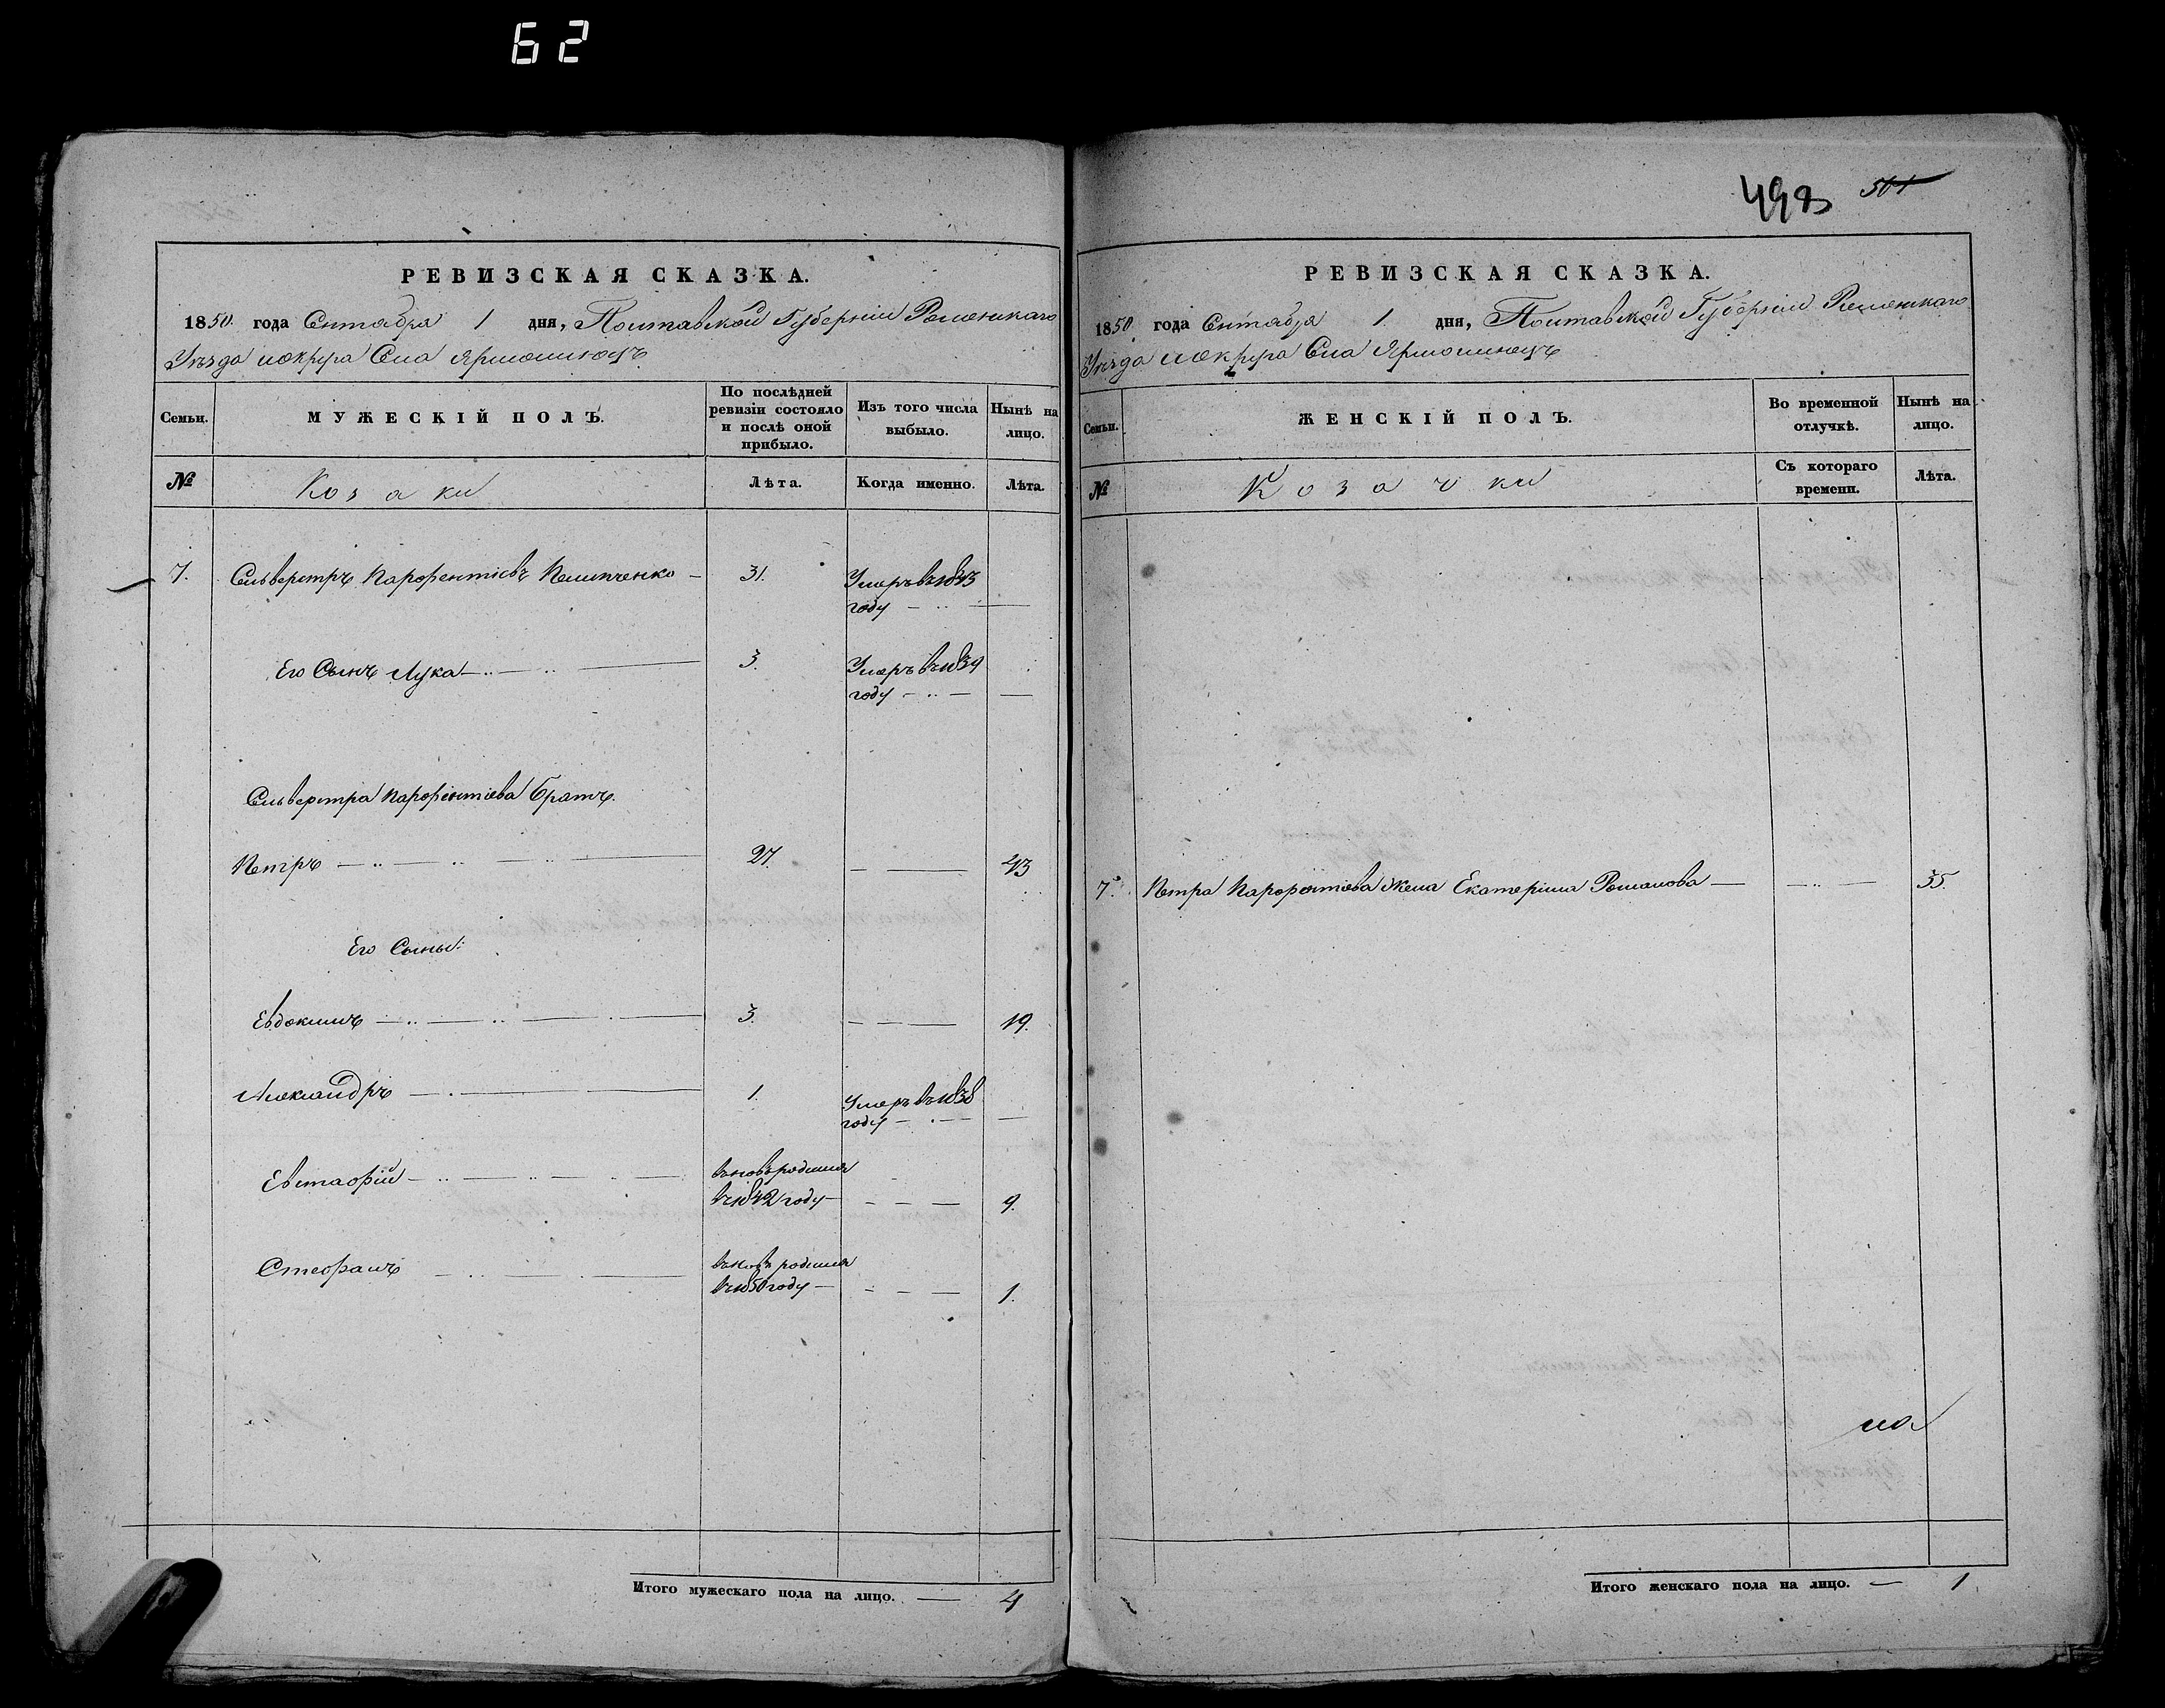 62
РЕВИЗСКАЯ СКАЗКА.
1850. года Сентября 1 дня, Полтавской Губерніи Роменскаго
Уѣзда и округа Села Ярмолинецъ
Семьи.
МУЖЕСКІЙ ПОЛЪ.
По послѣдней ревизіи состояло и послѣ оной прибыло.
Изъ того числа выбыло.
Нынѣ на лицо.
№
Козаки
Лѣта.
Когда именно.
Лѣта.
7. Сильверстръ Парфентіевъ Пилипченко — 31. Умеръ въ 1843
году
Его Сынъ Лука — 3. Умеръ въ 1839
году
Сильверстра Парфентіева братъ.
Петръ — 27. — 43
Его Сыны:
Евдокимъ — 3. — 19.
Александръ — 1. Умеръ въ 1838
году
Евстафій — вновь родился
въ 1842 году — 9.
Стефанъ — вновь родился
въ 1850 году — 1.
Итого мужескаго пола на лицо. — 4
498 501
РЕВИЗСКАЯ СКАЗКА.
1850 года Сентября 1. дня, Полтавской Губерніи Роменскаго
Уѣзда и округа Села Ярмолинецъ
Семьи.
ЖЕНСКІЙ ПОЛЪ.
Во временной отлучкѣ.
Нынѣ на лицо.
№
Козачки
Съ котораго времени.
Лѣта.
7. Петра Парфентіева жена Екатерина Романова — 35.
Итого женскаго пола на лицо. — 1.